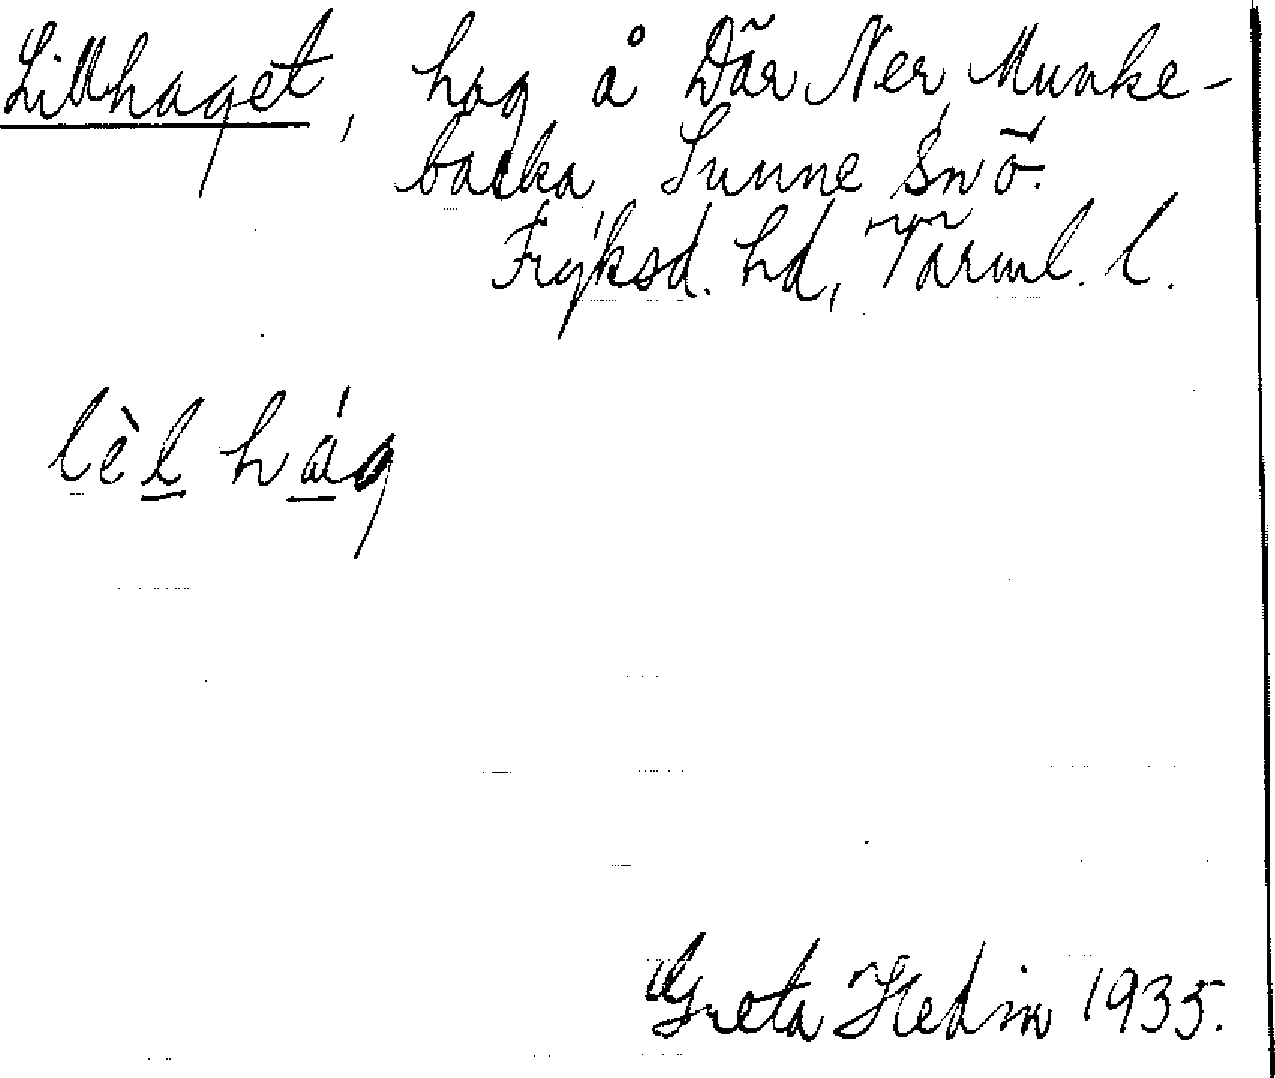 Lillhaget, hag å Där Ner, Munke-
backa Sunne sn ö.
Fryksd. hd, Värml. l.
lèl hág
Greta Hedin 1935.